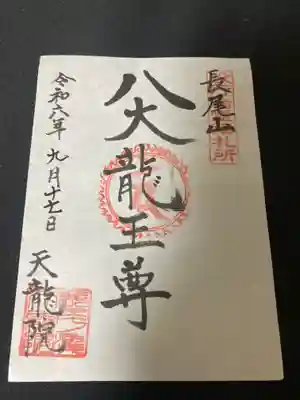 長尾山
八大龍王尊
令和六年 九月十七日
天龍院